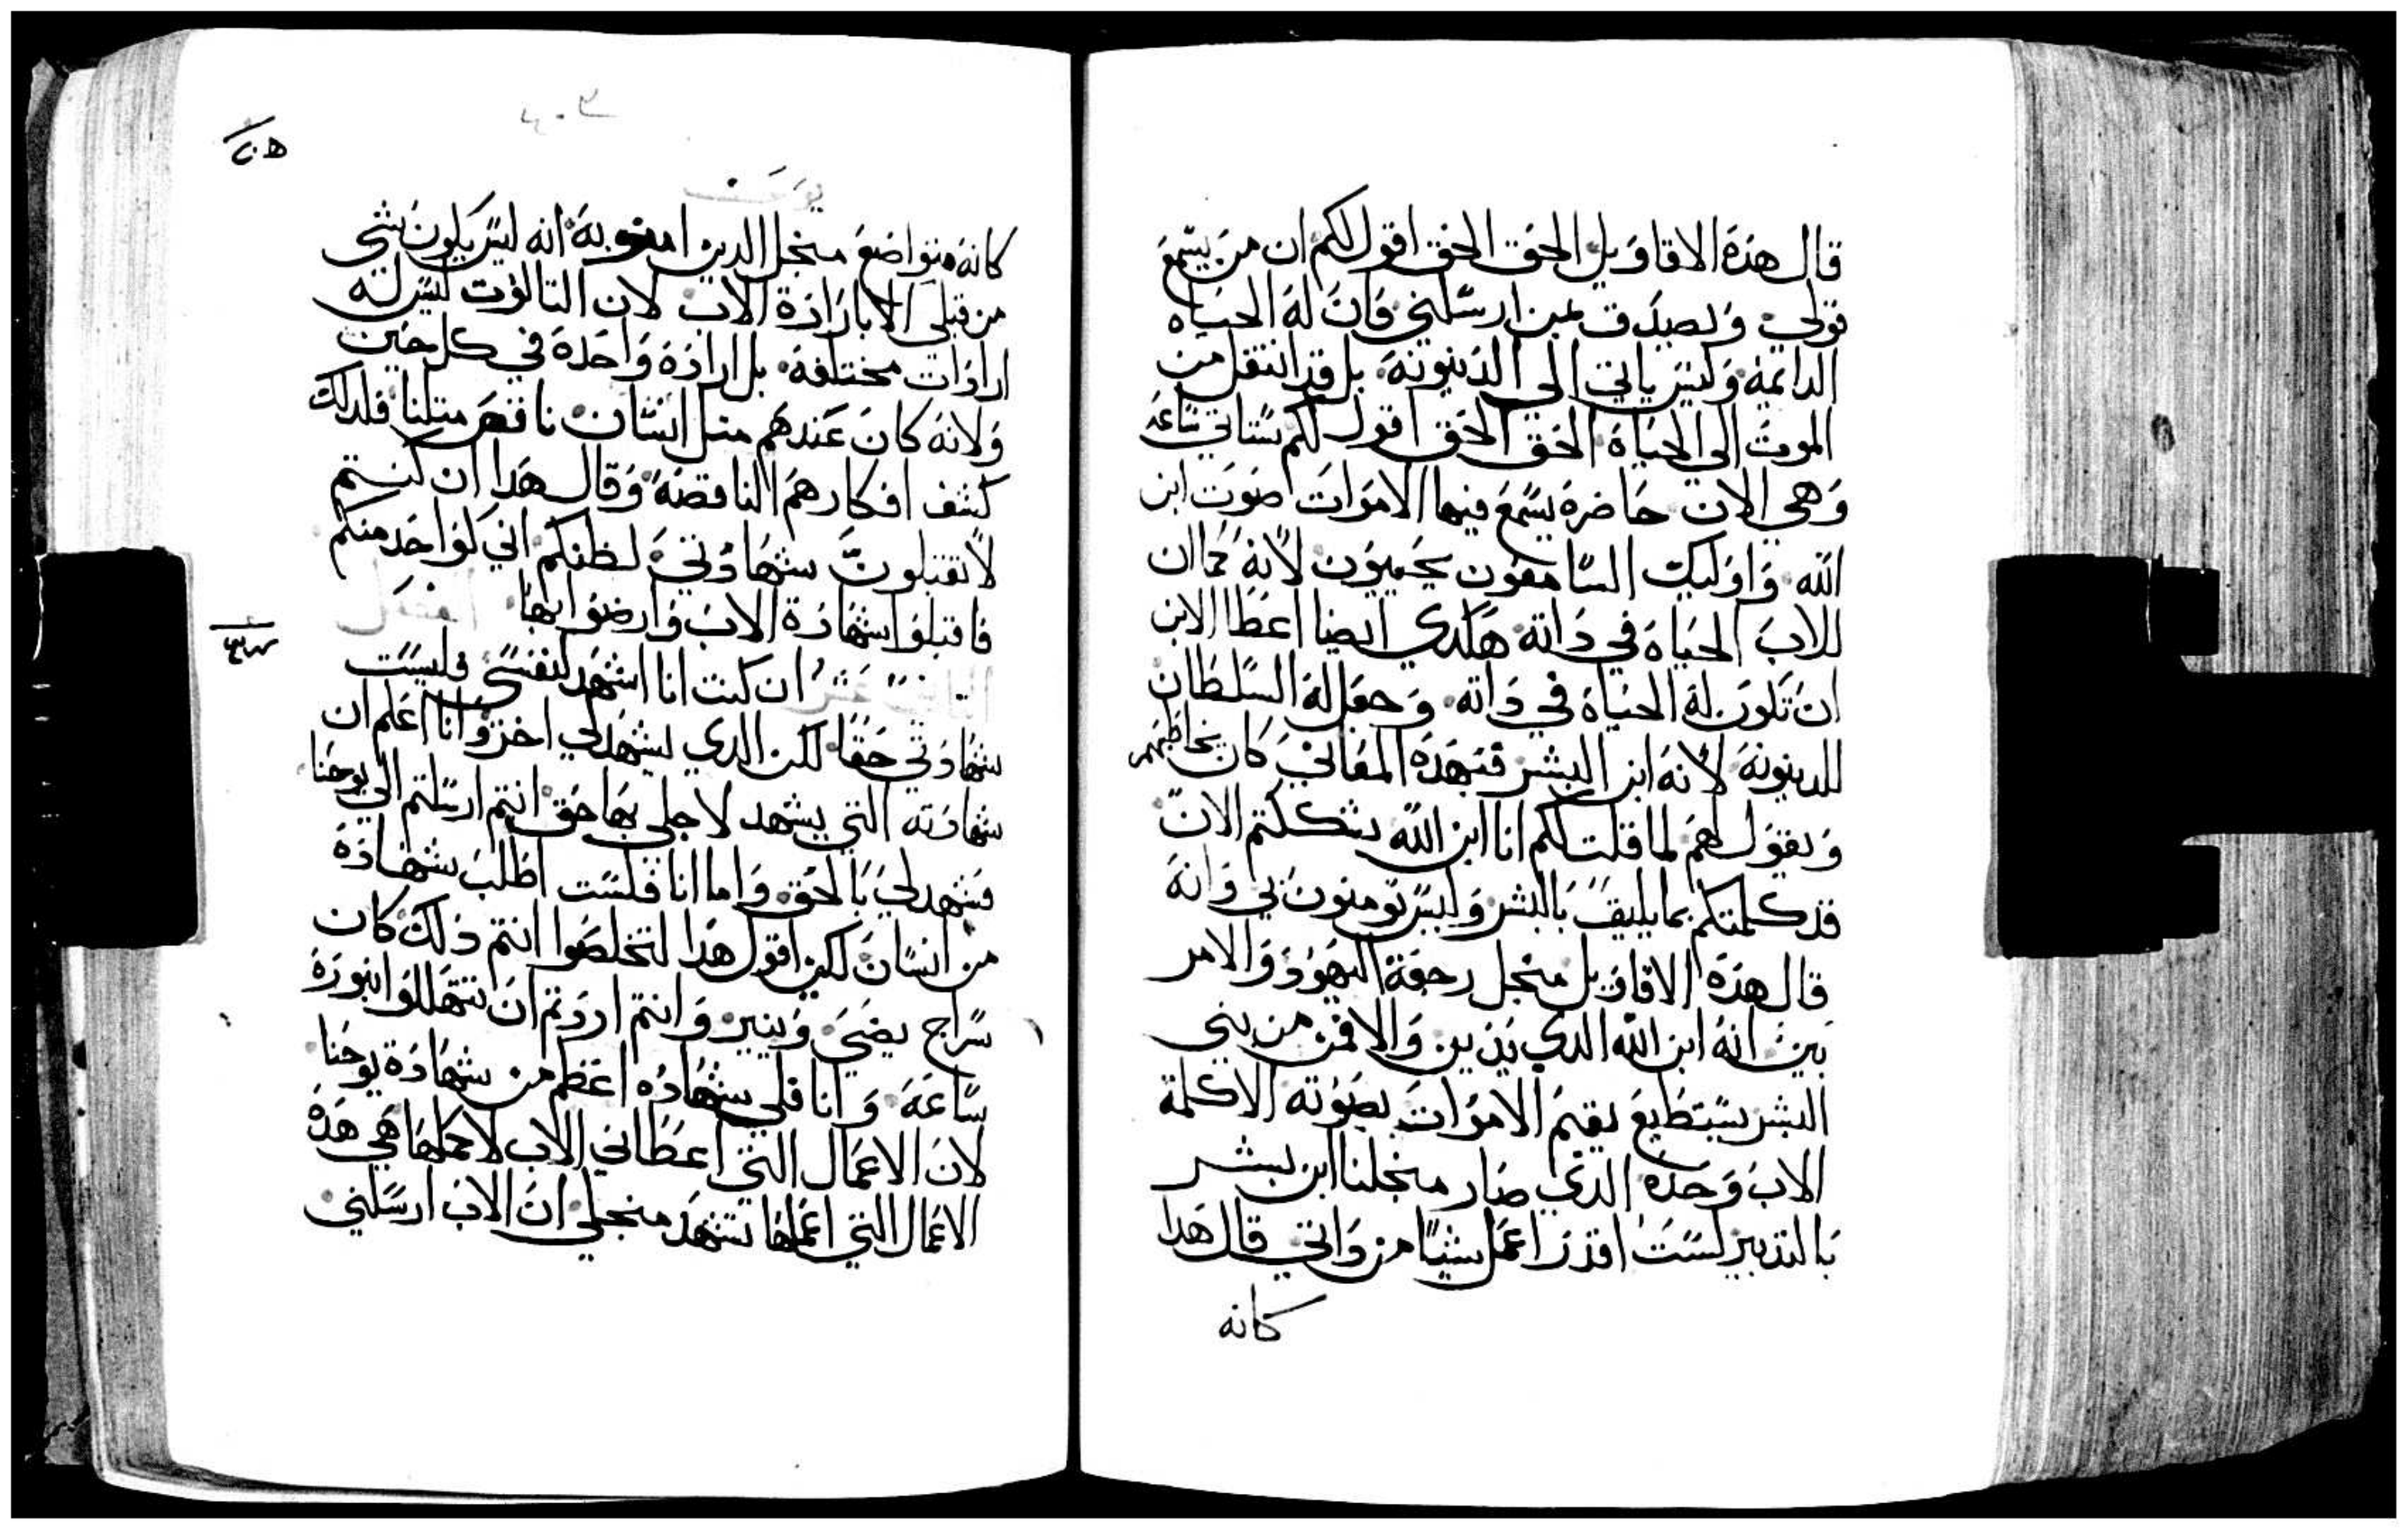 قال هذه الاقاويل الحق الحق اقول لكم ان من يسمع
قولي ويصدق لمن ارسلني فان له الحياه
الدايمة وليس ياتي الي الدينونة بل قد انتقل من
الموت الي الحياة الحق الحق اقول لكم ستاتي ساعة
وهي الان حاضرة يسمع فيها الاموات صوت ابن
الله واوليك السامعون يحييون لانه كما ان
للاب الحياة في داته هكدي ايضا اعطا الابن
ان تكون له الحياة في داته وجعل له السلطان
للدينونة لانه ابن البشر فبهده المعاني كان يخاطبهم
ويقول لهم لما قلت لكم انا ابن الله شككتم الان
قد كلمتكم بما يليق بالبشر وليس تومنون بي وانه
قال هذه الاقاويل منجل رجعة اليهود والامر
بين انه ابن الله الدي يدين والا فمن من بني
البشر يستطيع يقيم الاموات بصوته الا كلمة
الاب وحده الدي صار منجلنا ابن بشر
بالتدبير لست اقدر اعمل شيا من داتي قال هدا
كانه
يوحنا
كانه متواضع منجل الدين امنو به انه ليس يكون شي
من قبلي الا بارادة الاب لان التالوت ليس له
ارادات مختلفة بل ارادة واحدة في كل حين
ولانه كان عندهم متل انسان ناقص متلنا فلدلك
كشف افكارهم الناقصة وقال هدا ان كنتم
لا تقبلون شهادتي لظنكم اني كواحد منكم
فاقبلوا شهادة الاب وارضوا بها الفصل
ان كنت انا اشهد لنفسي فليست
شهادتي حقا لكن الدي يشهد لي اخر وانا اعلم ان
شهادته التي يشهد لاجلي بها حق انتم ارسلتم الي يوحنا
فشهد لي بالحق واما انا فلست اطلب شهادة
من انسان لكن اقول هدا لتخلصوا انتم ذلك كان
سراج يضي وينير وانتم اردتم ان تتهللوا بنوره
ساعة وانا فلي شهاده اعظم من شهادة يوحنا
لان الاعمال التي اعطاني الاب لاكملها هي هده
الاعمال التي اعملها تشهد منجلي ان الاب ارسلني